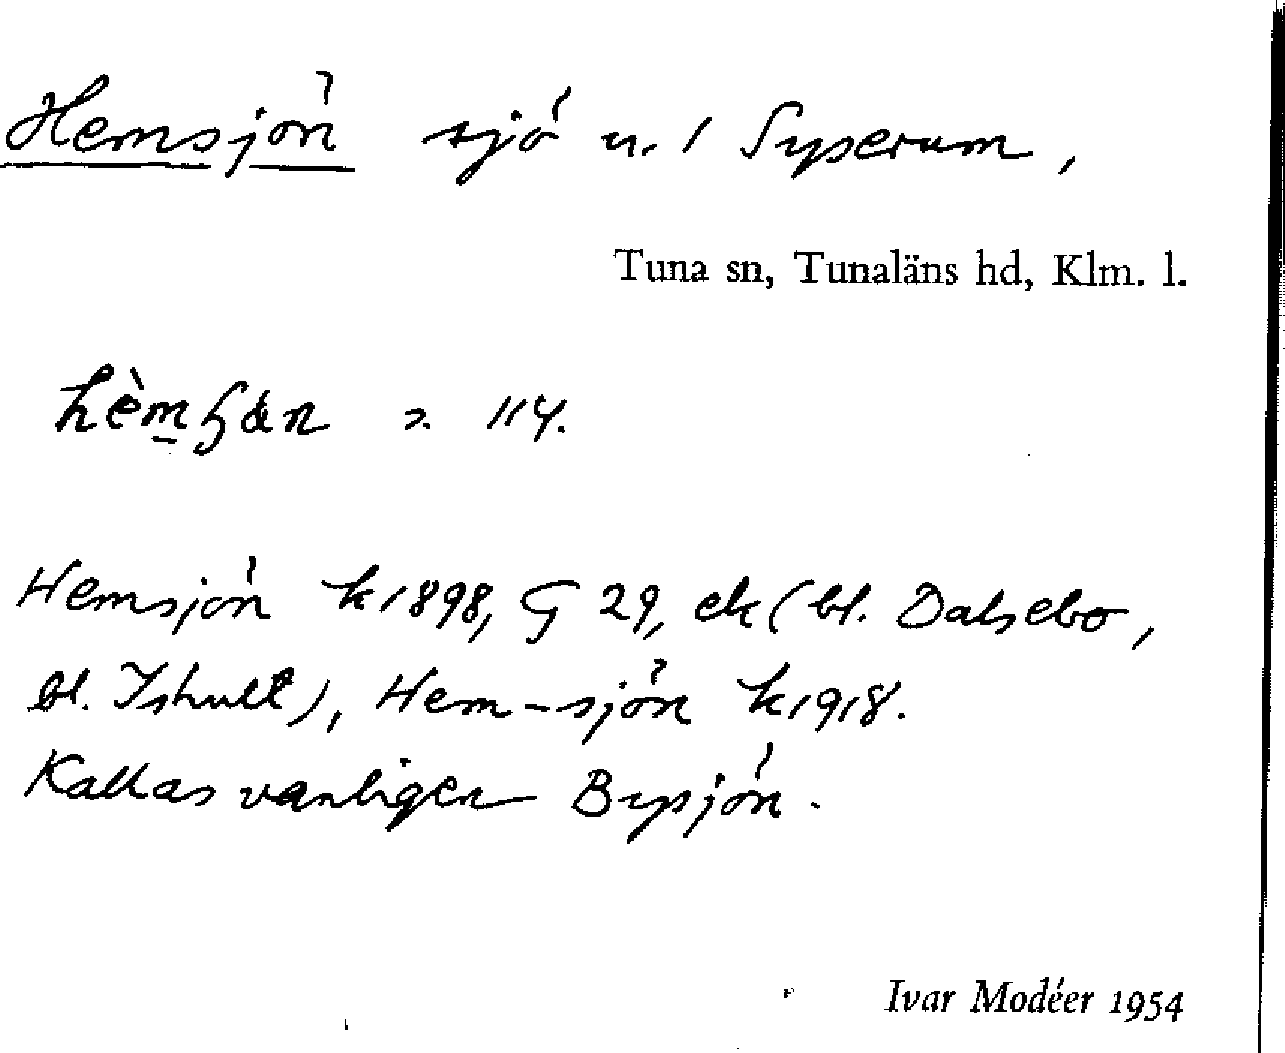 Hemsjön sjö n. / Syserum,
Tuna sn, Tunaläns hd, Klm. l.
114.
Hemsjön k1898, G 29, ek (bl. Dalsebo,
bl. Ishult), Hem-sjön k1918.
Kallas vanligen Bysjön.
Ivar Modéer 1954